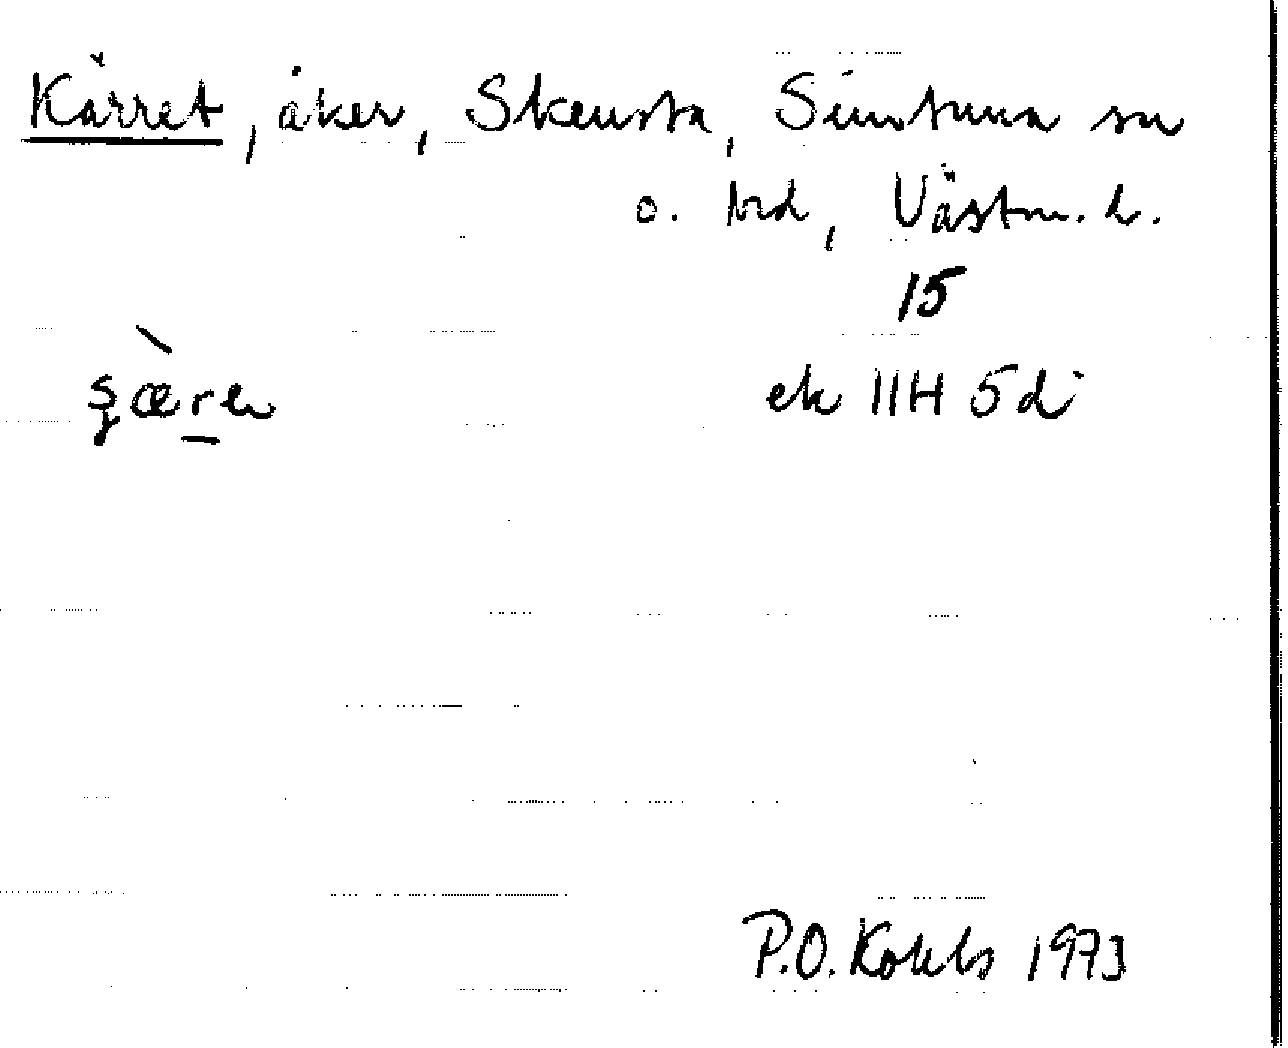 Kärret, åker, Skensta, Simtuna sn
o. hd, Västm. l.
15
ek 11H 5d
P.O. 1973